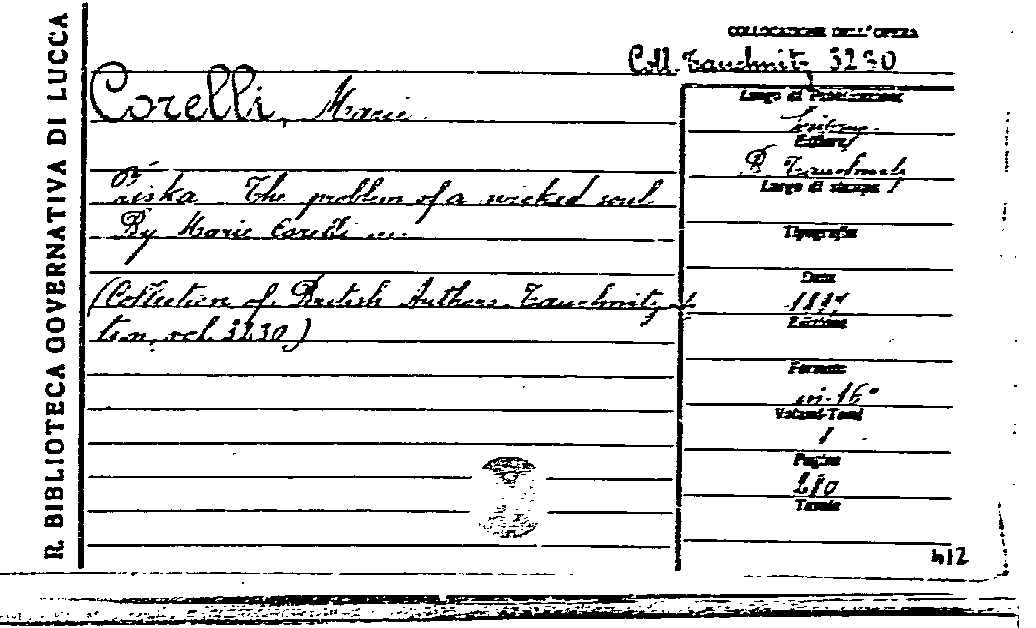 R. BIBLIOTECA GOVERNATIVA DI LUCCA
COLLOCAZIONE DELL'OPERA
Coll. Tauchnitz 3230
Corelli, Marie
Luogo di Pubblicazione
Editore
B. Tauchnitz
Luogo di stampa
Ziska The problem of a wicked soul
By Marie Corelli ...
Tipografia
Data
1897
(Collection of British Authers Tauchnitz edi
tion, vol. 3230)
Edizione
Formato
in-16°
Volumi-Tomi
1
Pagine
280
Tavole
412